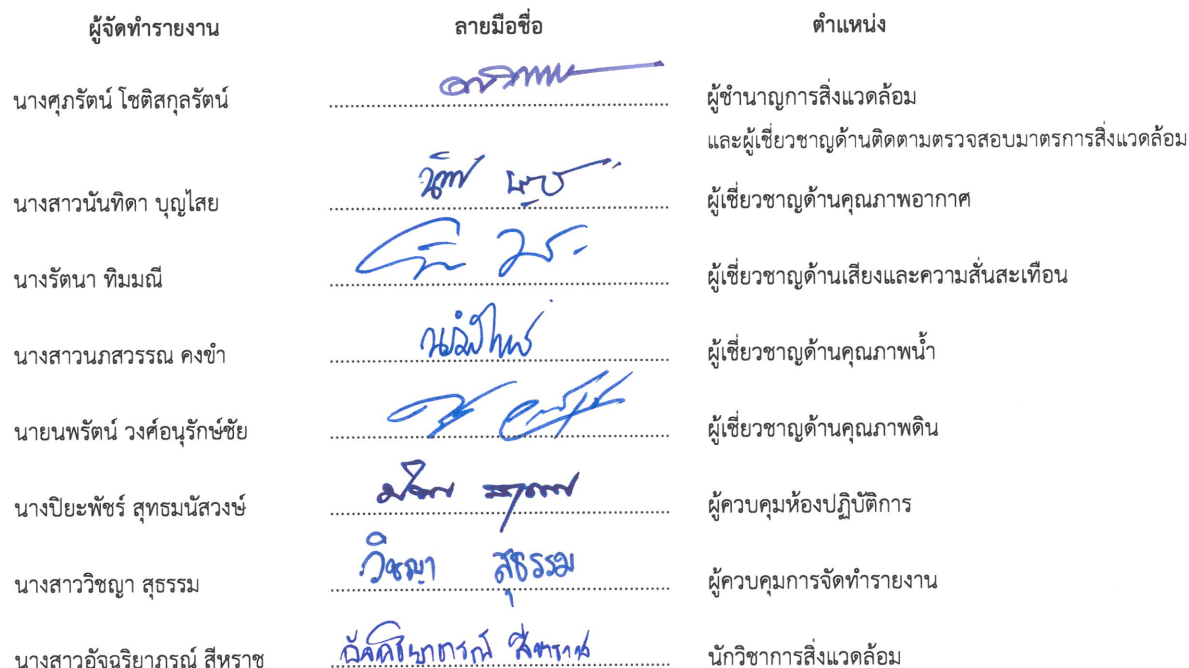 ผู้จัดทำรายงาน ลายมือชื่อ ตำแหน่ง
นางศุภรัตน์ โชติสกุลรัตน์ ผู้ชำนาญการสิ่งแวดล้อม
และผู้เชี่ยวชาญด้านติดตามตรวจสอบมาตรการสิ่งแวดล้อม
นางสาวนันทิดา บุญไสย ผู้เชี่ยวชาญด้านคุณภาพอากาศ
นางรัตนา ทิมมณี ผู้เชี่ยวชาญด้านเสียงและความสั่นสะเทือน
นางสาวนภสวรรณ คงขำ ผู้เชี่ยวชาญด้านคุณภาพน้ำ
นายนพรัตน์ วงศ์อนุรักษ์ชัย ผู้เชี่ยวชาญด้านคุณภาพดิน
นางปิยะพัชร์ สุทธมนัสวงษ์ ผู้ควบคุมห้องปฏิบัติการ
นางสาววิชญา สุธรรม วิชญา สุธรรม ผู้ควบคุมการจัดทำรายงาน
นางสาวอัจฉริยาภรณ์ สีหราช อัจฉริยาภรณ์ สีหราช นักวิชาการสิ่งแวดล้อม